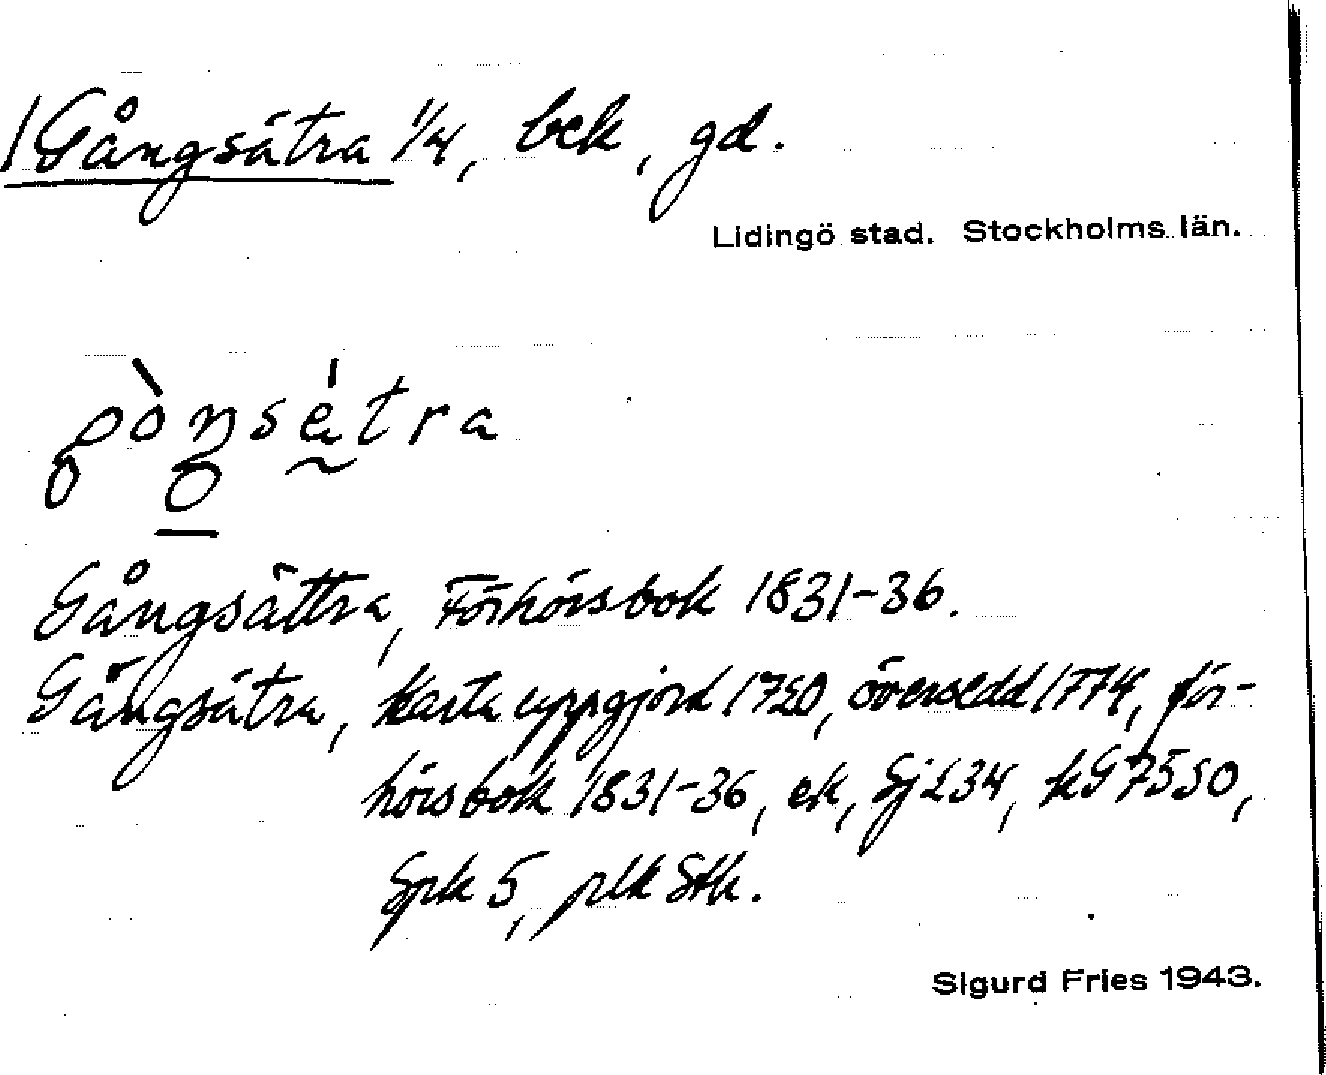 Gångsätra 1/4, bek, gd.
Lidingö stad. Stockholms län.
Gångsättra, Förhörsbok 1831-36.
Gångsätra, karta uppgjord 1720, översedd 1774, för-
hörsbok 1831-36, ek, Sj 234, kG 7550,
Spk 5, plk Sthk.
Sigurd Fries 1943.